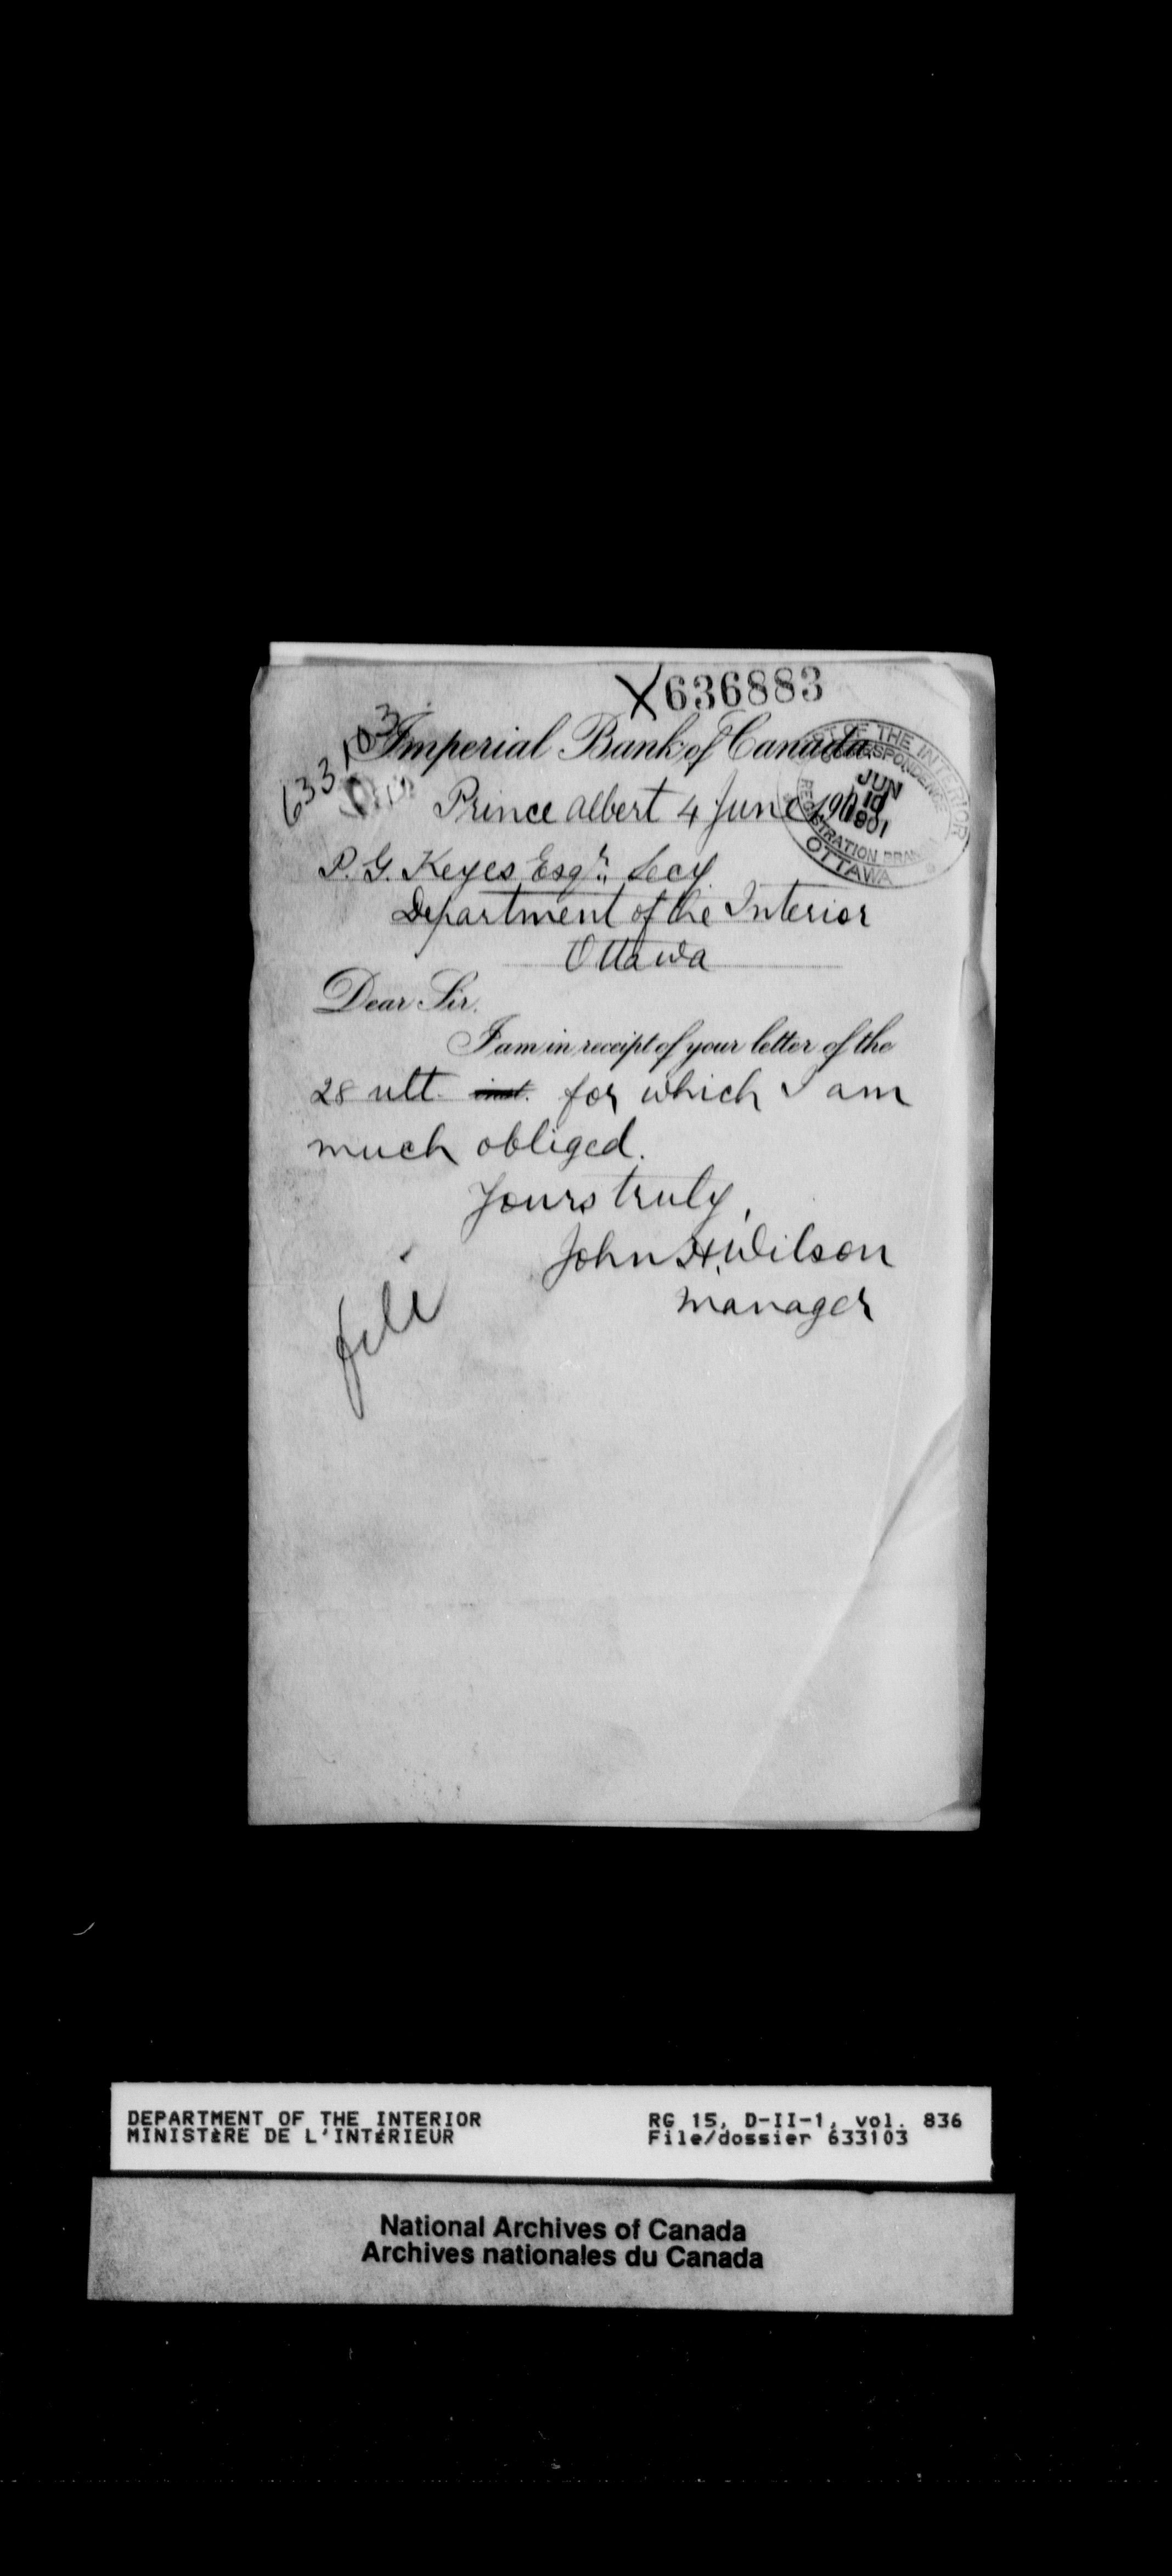 X 636883
633103
Imperial Bank of Canada
Prince Albert 4 June 1901
DEPT OF THE INTERIOR
CORRESPONDENCE
JUN
10
1901
REGISTRATION BRANCH
OTTAWA
P. G. Keyes Esqr. Secy
Department of the Interior
Ottawa
Dear Sir.
I am in receipt of your letter of the
28 ult. inst. for which I am
much obliged.
Yours truly,
John H. Wilson
Manager
file
DEPARTMENT OF THE INTERIOR
MINISTÈRE DE L'INTÉRIEUR
RG 15, D-II-1, vol. 836
File/dossier 633103
National Archives of Canada
Archives nationales du Canada